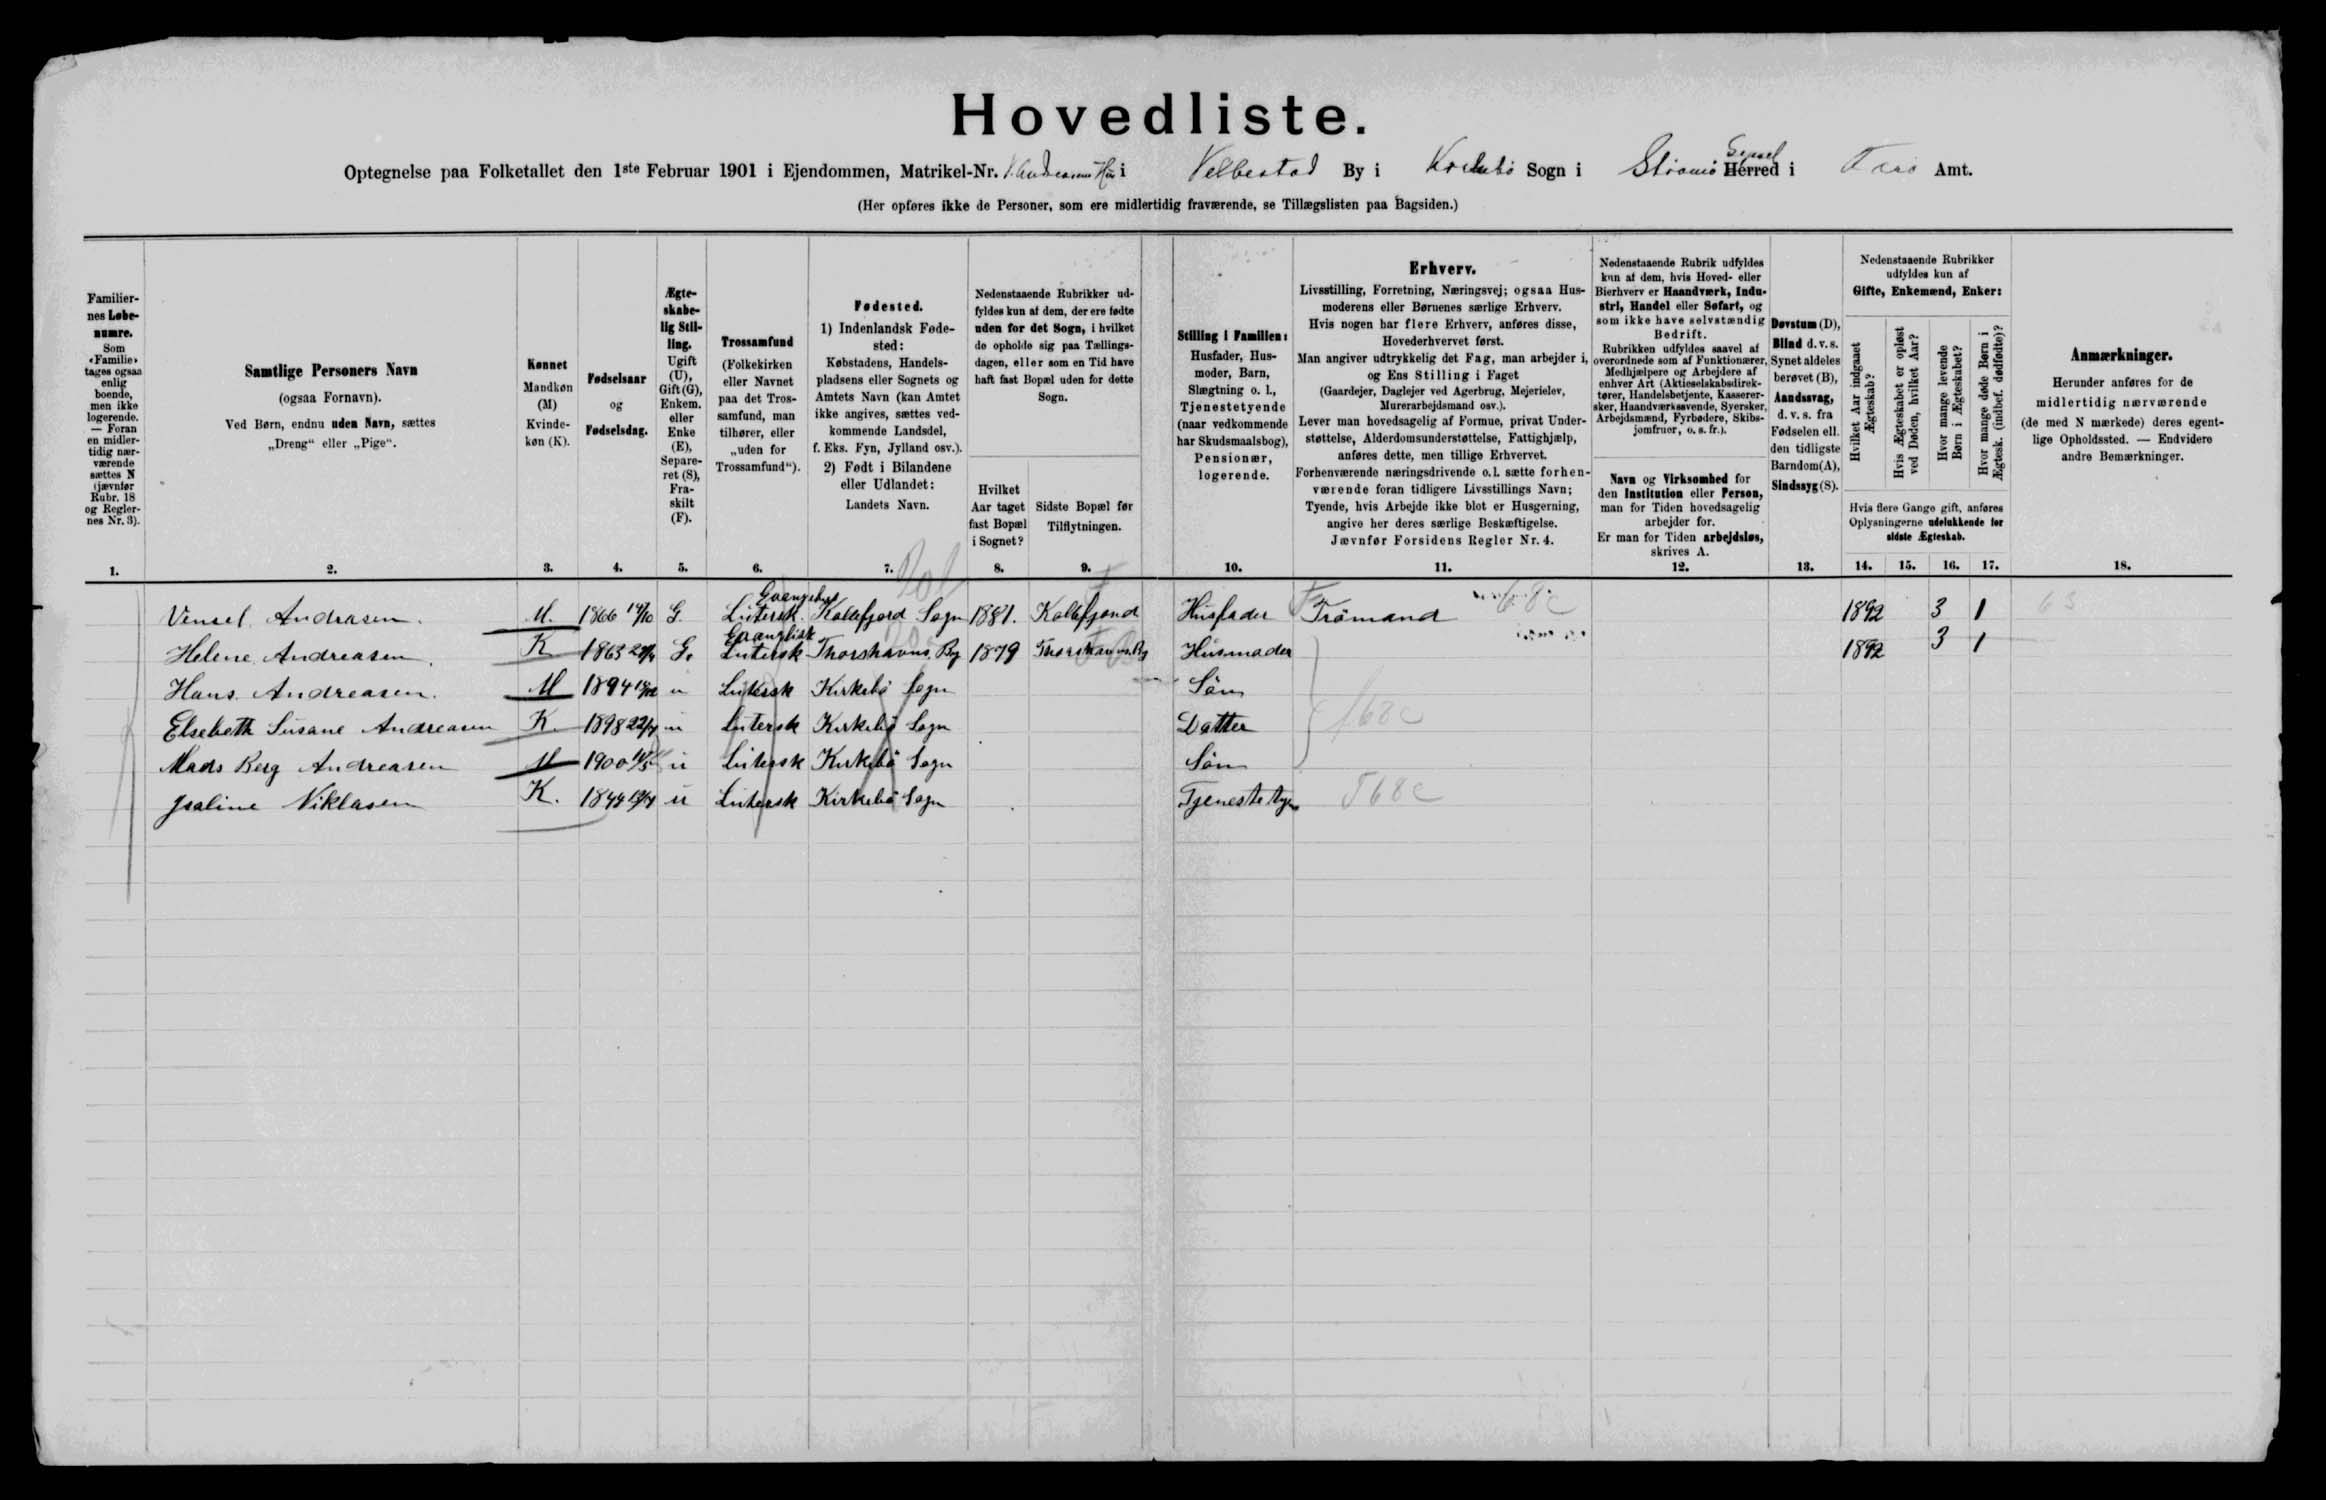 Hovedliste.
Optegnelse paa Folketallet den 1ste Februar 1901 i Ejendommen, Matrikel-Nr. V. Andreasens Hus i Velbestad By i Kirkebö Sogn i Strömö Herred Syssel i Færö Amt.
(Her opføres ikke de Personer, som ere midlertidig fraværende, se Tillægslisten paa Bagsiden.)
Familier-
nes Løbe-
numre.
Som
«Familie»
tages ogsaa
enlig
boende,
men ikke
logerende.
— Foran
en midler-
tidig nær-
værende
sættes N
(jævnfør
Rubr. 18
og Regler-
nes Nr. 3).
1.
Samtlige Personers Navn
(ogsaa Fornavn).
Ved Børn, endnu uden Navn, sættes
„Dreng“ eller „Pige“.
2.
Kønnet
Mandkøn
(M)
Kvinde-
køn (K).
3.
Fødselsaar
og
Fødselsdag.
4.
Ægte-
skabe-
lig Stil-
ling.
Ugift
(U),
Gift (G),
Enkem.
eller
Enke
(E),
Separe-
ret (S),
Fra-
skilt
(F).
5.
Trossamfund
(Folkekirken
eller Navnet
paa det Tros-
samfund, man
tilhører, eller
„uden for
Trossamfund“).
6.
Fødested.
1) Indenlandsk Føde-
sted:
Købstadens, Handels-
pladsens eller Sognets og
Amtets Navn (kan Amtet
ikke angives, sættes ved-
kommende Landsdel,
f. Eks. Fyn, Jylland osv.).
2) Født i Bilandene
eller Udlandet:
Landets Navn.
7.
Nedenstaaende Rubrikker ud-
fyldes kun af dem, der ere fødte
uden for det Sogn, i hvilket
de opholde sig paa Tællings-
dagen, eller som en Tid have
haft fast Bopæl uden for dette
Sogn.
Hvilket
Aar taget
fast Bopæl
i Sognet?
8.
Sidste Bopæl før
Tilflytningen.
9.
Stilling i Familien:
Husfader, Hus-
moder, Barn,
Slægtning o. l.,
Tjenestetyende
(naar vedkommende
har Skudsmaalsbog),
Pensionær,
logerende.
10.
Erhverv.
Livsstilling, Forretning, Næringsvej; ogsaa Hus-
moderens eller Børnenes særlige Erhverv.
Hvis nogen har flere Erhverv, anføres disse,
Hovederhvervet først.
Man angiver udtrykkelig det Fag, man arbejder i,
og Ens Stilling i Faget
(Gaardejer, Daglejer ved Agerbrug, Mejerielev,
Murerarbejdsmand osv.).
Lever man hovedsagelig af Formue, privat Under-
støttelse, Alderdomsunderstøttelse, Fattighjælp,
anføres dette, men tillige Erhvervet.
Forhenværende næringsdrivende o.l. sætte forhen-
værende foran tidligere Livsstillings Navn;
Tyende, hvis Arbejde ikke blot er Husgerning,
angive her deres særlige Beskæftigelse.
Jævnfør Forsidens Regler Nr. 4.
11.
Nedenstaaende Rubrik udfyldes
kun af dem, hvis Hoved- eller
Bierhverv er Haandværk, Indu-
stri, Handel eller Søfart, og
som ikke have selvstændig
Bedrift.
Rubrikken udfyldes saavel af
overordnede som af Funktionærer,
Medhjælpere og Arbejdere af
enhver Art (Aktieselskabsdirek-
tører, Handelsbetjente, Kasserer-
sker, Haandværkssvende, Syersker,
Arbejdsmænd, Fyrbødere, Skibs-
jomfruer, o. s. fr.).
Navn og Virksomhed for
den Institution eller Person,
man for Tiden hovedsagelig
arbejder for.
Er man for Tiden arbejdsløs,
skrives A.
12.
Døvstum (D),
Blind d. v. s.
Synet aldeles
berøvet (B),
Aandssvag,
d. v. s. fra
Fødselen ell.
den tidligste
Barndom (A),
Sindssyg (S).
13.
Nedenstaaende Rubrikker
udfyldes kun af
Gifte, Enkemænd, Enker:
Hvilket Aar indgaaet
Ægteskab?
Hvis Ægteskabet er opløst
ved Døden, hvilket Aar?
Hvor mange levende
Børn i Ægteskabet?
Hvor mange døde Børn i
Ægtesk. (indbef. dødfødte)?
Hvis flere Gange gift, anføres
Oplysningerne udelukkende for
sidste Ægteskab.
14. 15. 16. 17.
Anmærkninger.
Herunder anføres for de
midlertidig nærværende
(de med N mærkede) deres egent-
lige Opholdssted. — Endvidere
andre Bemærkninger.
18.
Vensel Andrasen. M. 1866 14/10 G. Evangelisk Lutersk. Kollefjord Sogn 1881. Kollefjord Husfader Trömand 68c 1892 3 1 63
Helene Andreasen. K 1863 G. Evanglisk Lutersk Thorshavns By 1879 Thorshavns By Husmoder 1892 3 1
Hans Andreasen. M 1894 u Lutersk Kirkebö Sogn Sön
Elsebeth Susane Andreasen K. 1898 22/4 u Lutersk Kirkebö Sogn Datter f68c
Mads Berg Andreasen M 1900 u Lutersk Kirkebö Sogn Sön
Jsaline Niklasen K. 1844 u Lutersk Kirkebö Sogn Tjenestetyen T68c